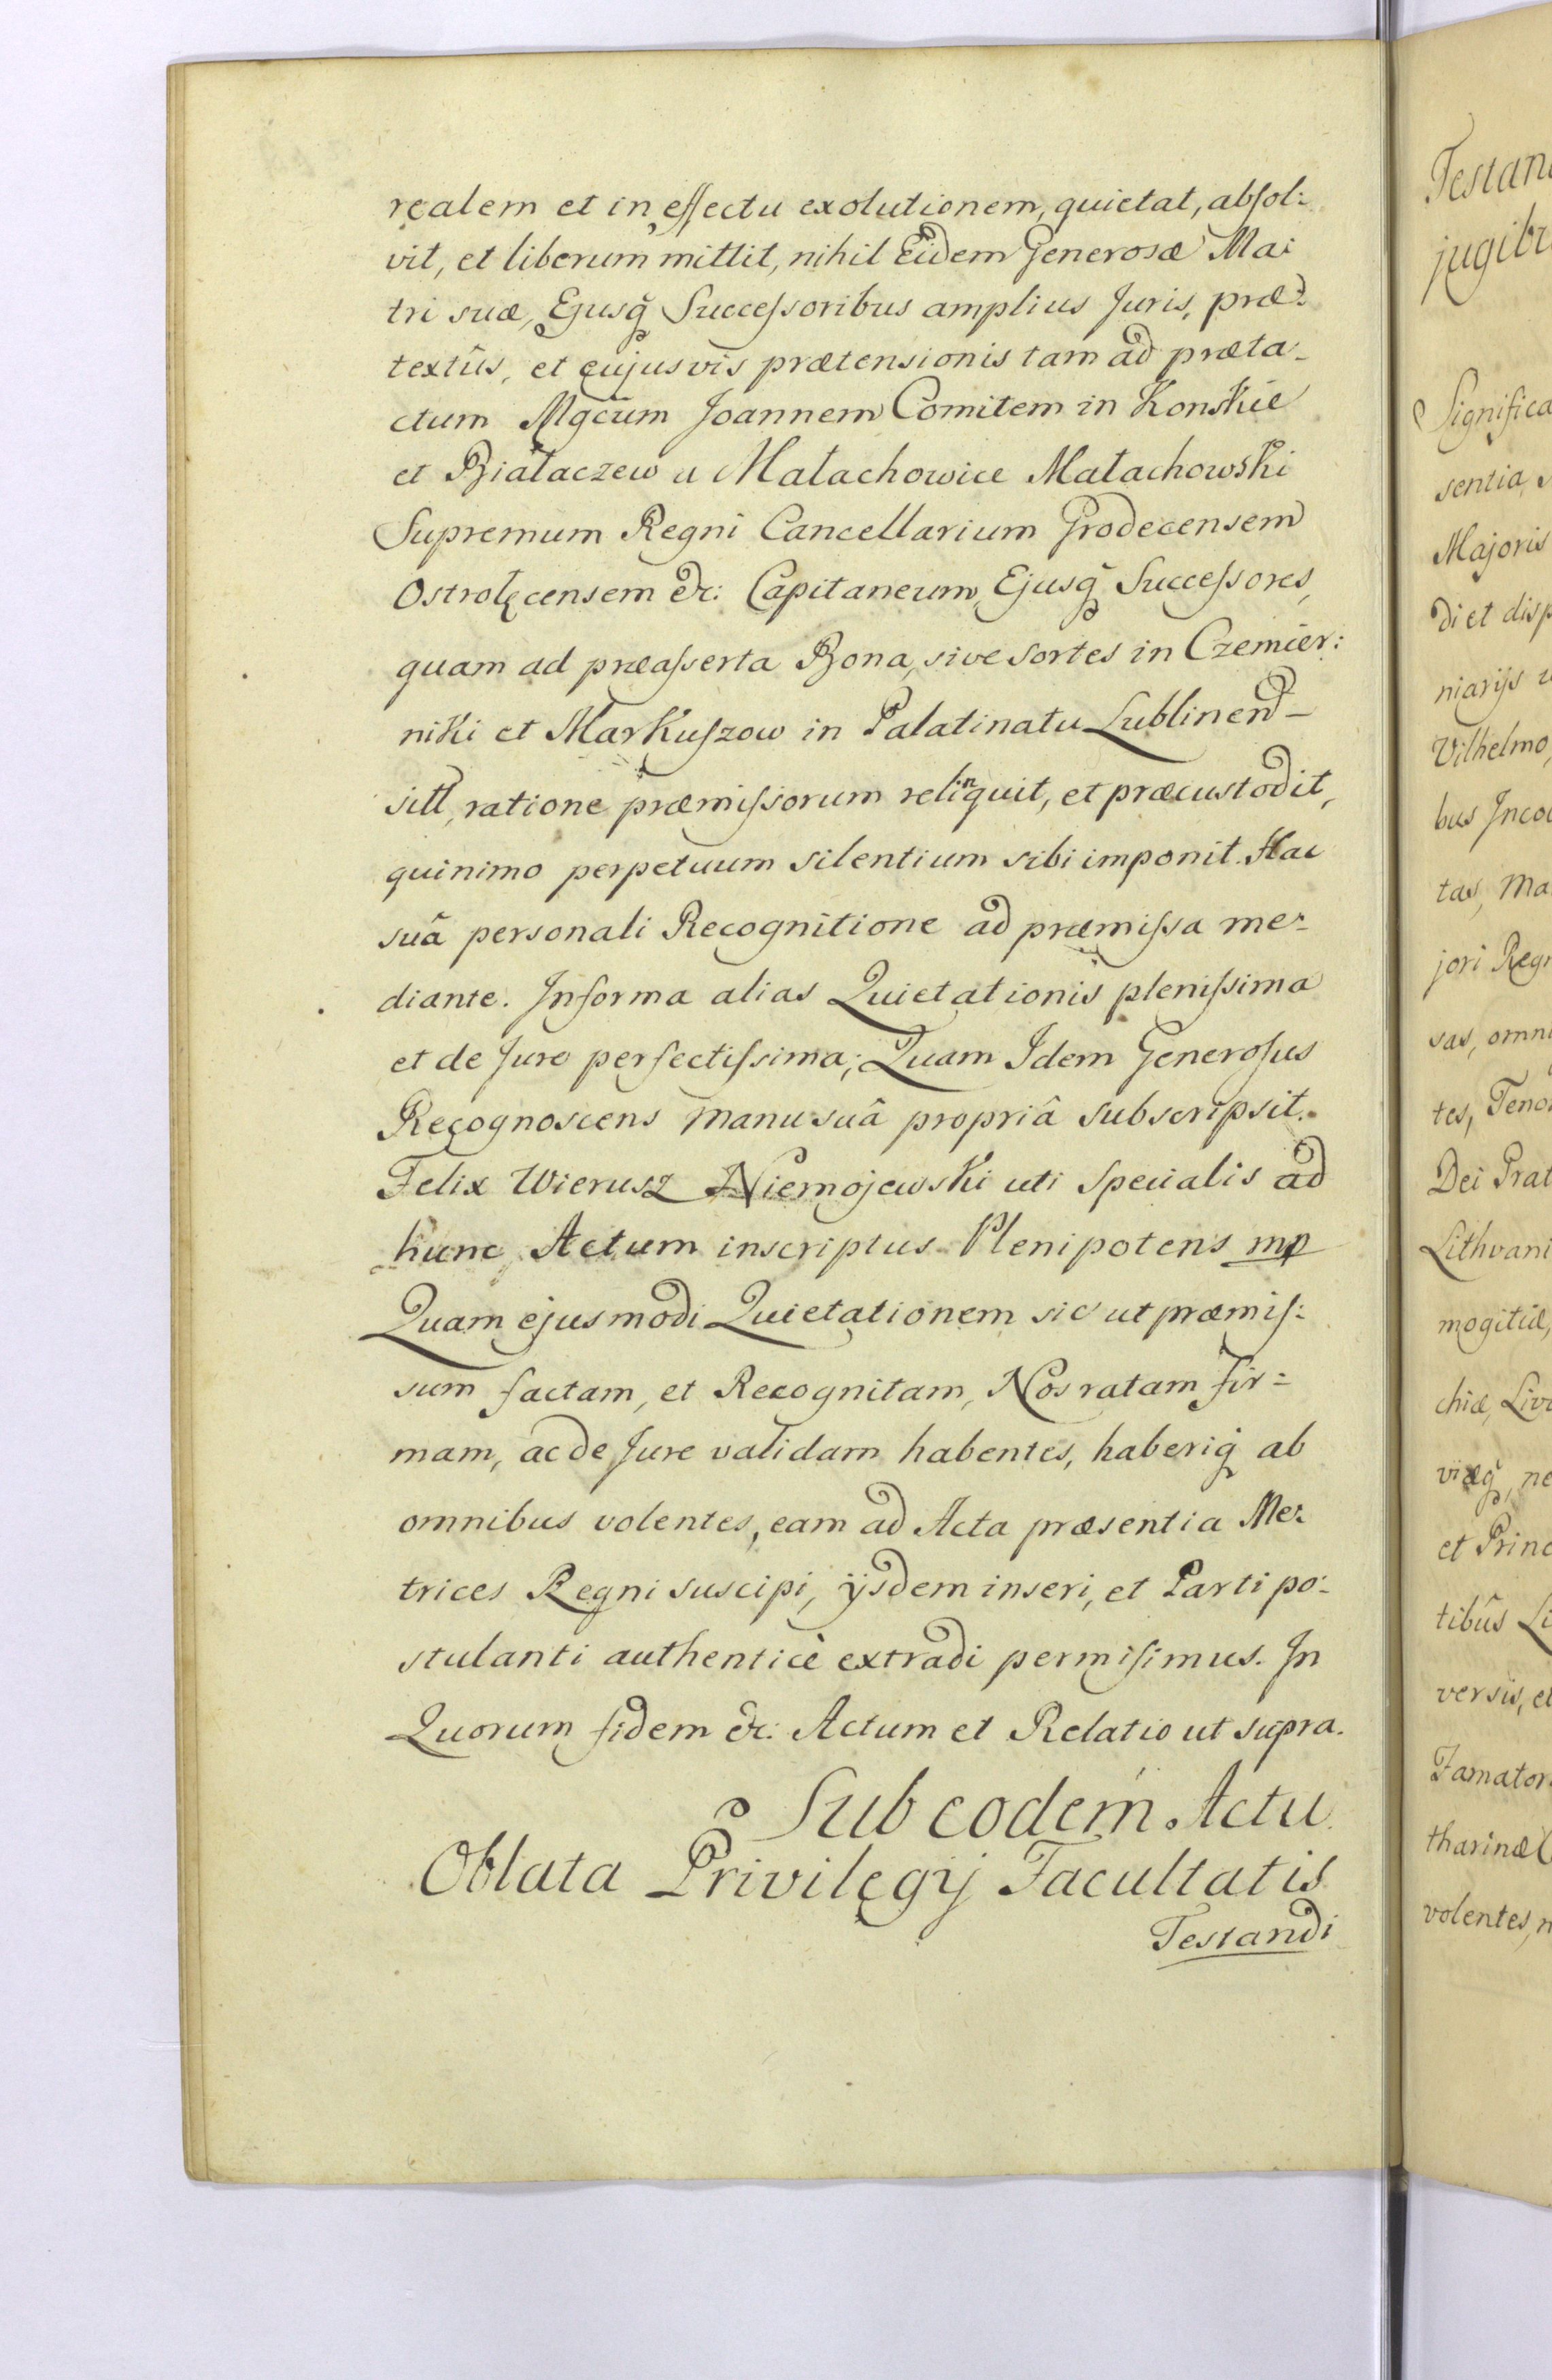 realem et in effectu exolutionem, quietat, absol:
vit, et liberum mittit, nihil Eidem Generosæ Ma:
tri suæ, Ejusq́ Successoribus amplius Juris, præ:
textûs, et cujusvis prætensionis tam ad præta-
ctum Mgcum Joannem Comitem in Konskie
et Białaczew a Małachowice Małachowski
Supremum Regni Cancellarium Grodecensem
Ostrolęcensem &c: Capitaneum, Ejusq́ Successores,
quam ad præasserta Bona, sive sortes in Czemier:
niki et Markuszow in Palatinatu Lublinen-
sitt, ratione præmissorum relinquit, et præcustodit,
quinimo perpetuum silentium sibi imponit. Hac
suâ personali Recognitione ad præmissa me-
diante. Informa alias Quietationis plenissima
et de Jure perfectissima; Quam Idem Generosus
Recognoscens manu suâ propriâ subscripsit.
Felix Wierusz Niemojewski uti specialis ad
hunc Actum inscriptus Plenipotens mp
Quam ejusmodi Quietationem sic ut præmis:
sum factam, et Recognitam, Nos ratam fir=
mam, ac de Jure validam habentes, haberiq́ ab
omnibus volentes, eam ad Acta præsentia Me:
trices Regni suscipi, ijsdem inseri, et Parti po-
stulanti authenticè extradi permisimus. In
Quorum fidem &c: Actum et Relatio ut supra.
Sub eodem Actu
Oblata Privilegij Facultatis
Testandi
Testan
jugib
Significa
sentia
Majoris
di et disp
niarijs
Vilhelmo,
bus Inco
tas, Ma
jori Reg
sas, omn
tes, Teno
Dei Grat
Lithvani
mogitiæ,
chiæ, Liv
viæq́, ne
et Princ
tibûs Li
versis, et
Famator
tharinæ
volentes, n